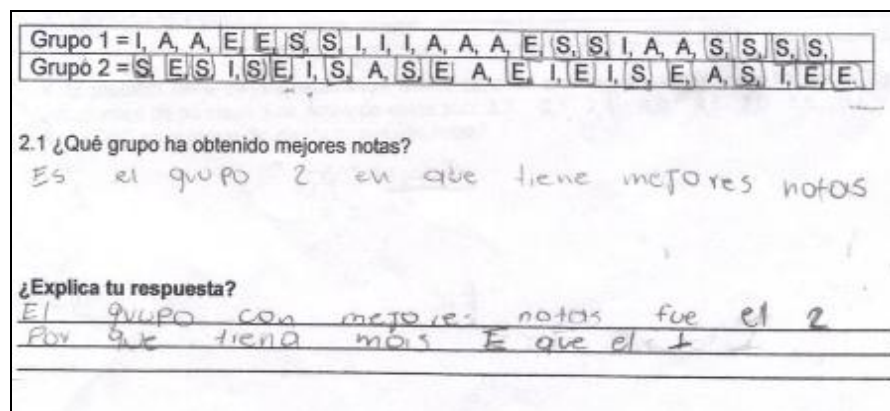 Grupo 1 = I, A, A, E, E, S, S, I, I, I, A, A, A, E, S, S, I, A, A, S, S, S, S,
Grupo 2 = S, E, S, I, S, E, I, S, A, S, E, A, E, I, E, I, S, E, A, S, I, E, E.
2.1 ¿Qué grupo ha obtenido mejores notas?
Es el grupo 2 en que tiene mejores notas
¿Explica tu respuesta?
El grupo con mejores notas fue el 2
Por que tiene mas E que el 1